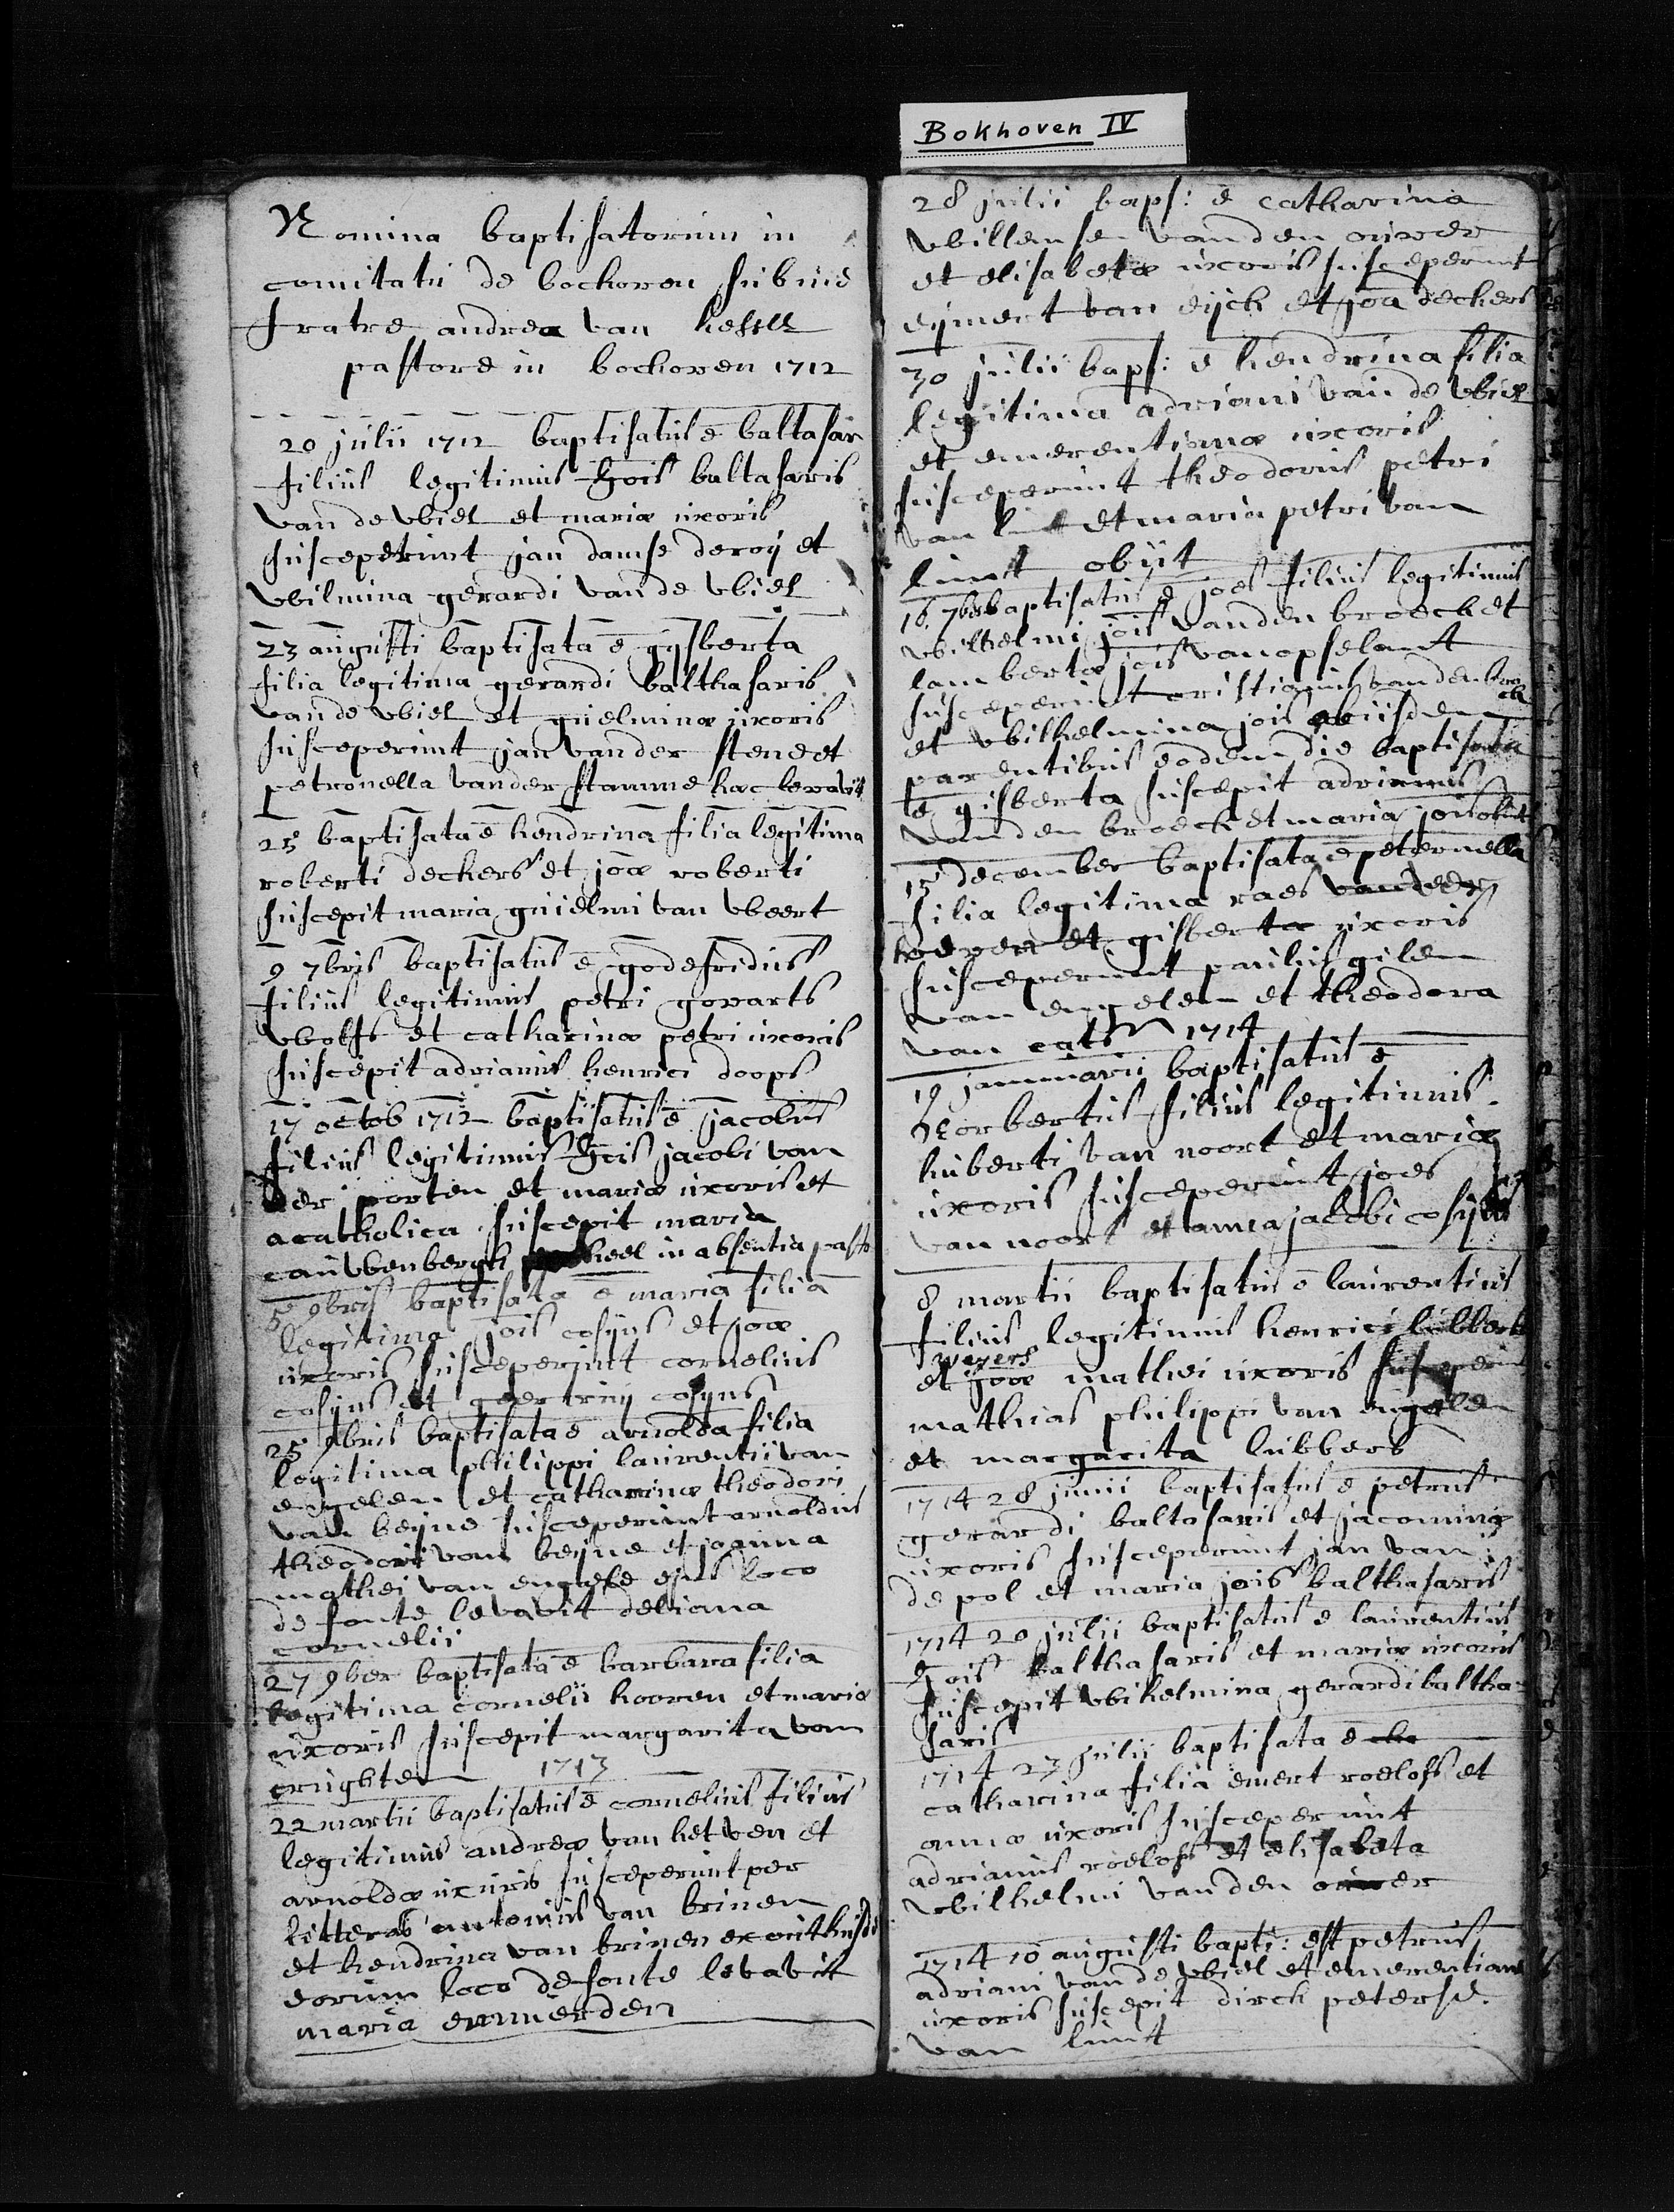 Bokhoven IV
Nomina baptisatorum in
comitatu de bochoven sub me
fratre andrea van hessel
pastore in bochoven 1712
20 julii 1712 baptisatus e baltasar
filius legitimus jois baltasaris
van de wiel et mariæ uxoris
susceperunt jan damse deroij et
wilmina gerardi van de wiel
23 augusti baptisata e gysberta
filia legitima gerardi balthasaris
van de wiel et guielminæ uxoris
susceperunt jan vander steen et
petronella vander stamme hac levavit
25 baptisata e hendrina filia legitima
roberti deckers et joæ roberti
suscepit maria guielmi van weert
9 7bris baptisatus e godefridus
filius legitimus petri govarts
wolfs et catharinæ petri uxoris
suscepit adrianus henrici doops
17 octob 1712 baptisatus e jacobus
filius legitimus jois jacobi van
der porten et mariæ uxoris et
acatholica suscepit maria
cauwenbergh heel in absentia pasto
5 9bris baptisata e maria filia
legitima jois cosijns et joæ
uxoris susceperunt cornelius
cosijns et geertruij cosyns
25 9bris baptisata e arnolda filia
legitima philippi laurentii van
engelen et catharinæ theodori
van beijne susceperunt arnoldus
theodori van beijne et joanna
mathei van engele ejus loco
de fonte levavit deliana
cornelii
27 9ber baptisata e barbara filia
legitima cornelii hooven et mariæ
uxoris suscepit margarita van
crughten 1713
22 martii baptisatus e cornelius filius
legitimus andreæ van het ven et
arnoldæ uxuris susceperunt per
litteras antonius van brinen
et hendrina van brinen ex onthusde
eorum loco de fonte levavit
maria emmerden
28 julii baps: e catharina
willemse van den ouwer
et elisabetæ uxoris susceperunt
eijmert van eijck et joa deckers
30 julii baps: e hendrina filia
legitima adriani van de wiel
et emerentianæ uxoris
susceperunt theodorus petri
van et maria petri van
lunt obijt
16 7bris baptisatus e joes filius legitimus
wilhelmi jois vanden broeck et
lambertæ jois van opselant
susceperunt cristianus vanden broeck
et wilhelmina jois ex iisdem
parentibus eodem die baptisata
e gisberta suscepit adrianus
van den broeck et maria jois obiit
15 december baptisata e peternella
filia legitima raes vander
hoeven et gisbertæ uxoris
susceperunt paulus gilen
van engelen et theodora
van cats 1714
19 jannuarii baptisatus e
Norbertus filius legitimus
huberti van noort et mariæ
uxoris susceperunt joes
van noort et anna jacobi cosijns
8 martii baptisatus e laurentius
filius legitimus henrici lubberts
wevers
et joæ mathei uxoris susceperunt
mathias philippi van engelen
et margarita lubbers
1714 28 junii baptisatus e petrus
gerardi baltasaris et jacominæ
uxoris susceperunt jan van
de pol et maria jois balthasaris
1714 20 julii baptisatus e laurentius
jois balthasaris et mariæ uxoris
suscepit wilhelmina gerardi baltha-
saris
1714 23 julii baptisata e
catharina filia emert roelofs et
annæ uxoris susceperunt
adrianus roelofs et elisabeta
wilhelmi van den ouwer
1714 10 augusti bapti: est petrus
adriani van de wiel et emerentianæ
uxoris suscepit dirck peterse
van lunt